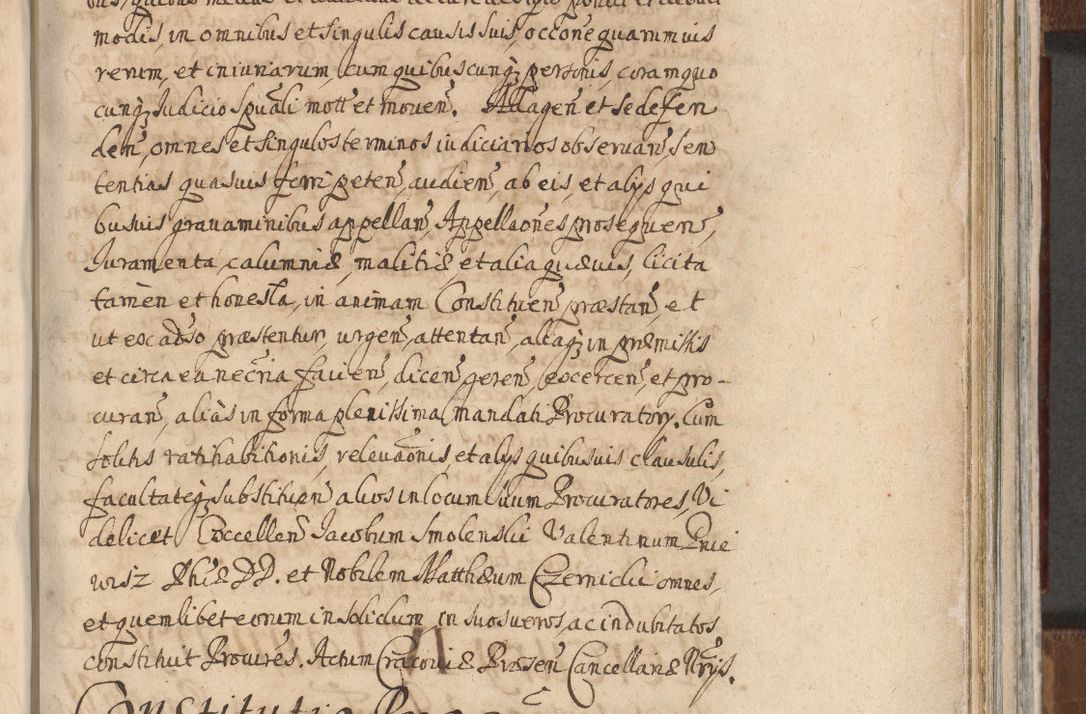 modis, in omnibus et singulis causis suis, occone quarumvis
rerum, et iniuriarum, cum quibuscunq; personis, coram quo
cunq; Iudicio Spuali mott et mouen. Ad agen et se defen
den, omnes et singulos terminos iudiciarios obseruan, sen
tentias quasuis ferri peten, audien, ab eis, et alys qui
busuis grauaminibus appellan, Appellaones prosequen,
Iuramenta, calumniæ, malitiæ, et alia quæuis, licita
tamen et honesta, in animam Constituen præstan, et
ut ex adso præstentur, urgen, attentan, aliaq; in præmissis
et circa ea necria facien, dicen, geren, exercen, et pro-
curan, aliàs in forma plenissima, mandati Procuratory. Cum
solitis ratihabitionis, releuaonis, et alys quibusuis clausulis,
facultateq; substituen alios in locum suum Procuratores, Vi
delicet Excellen Iacobum Smolenskii Valentinum Pnie
wisz Phiæ DD. et Nobilem Matthæum Czernicki omnes,
et quemlibet eorum in solidum, in suos veros, ac indubitatos
constituit Procures. Actum Cracouiæ Præsen Cancellariæ Nrys.
Constitutio